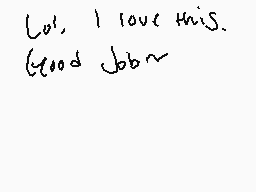 Lol, I love this.
Good Job~